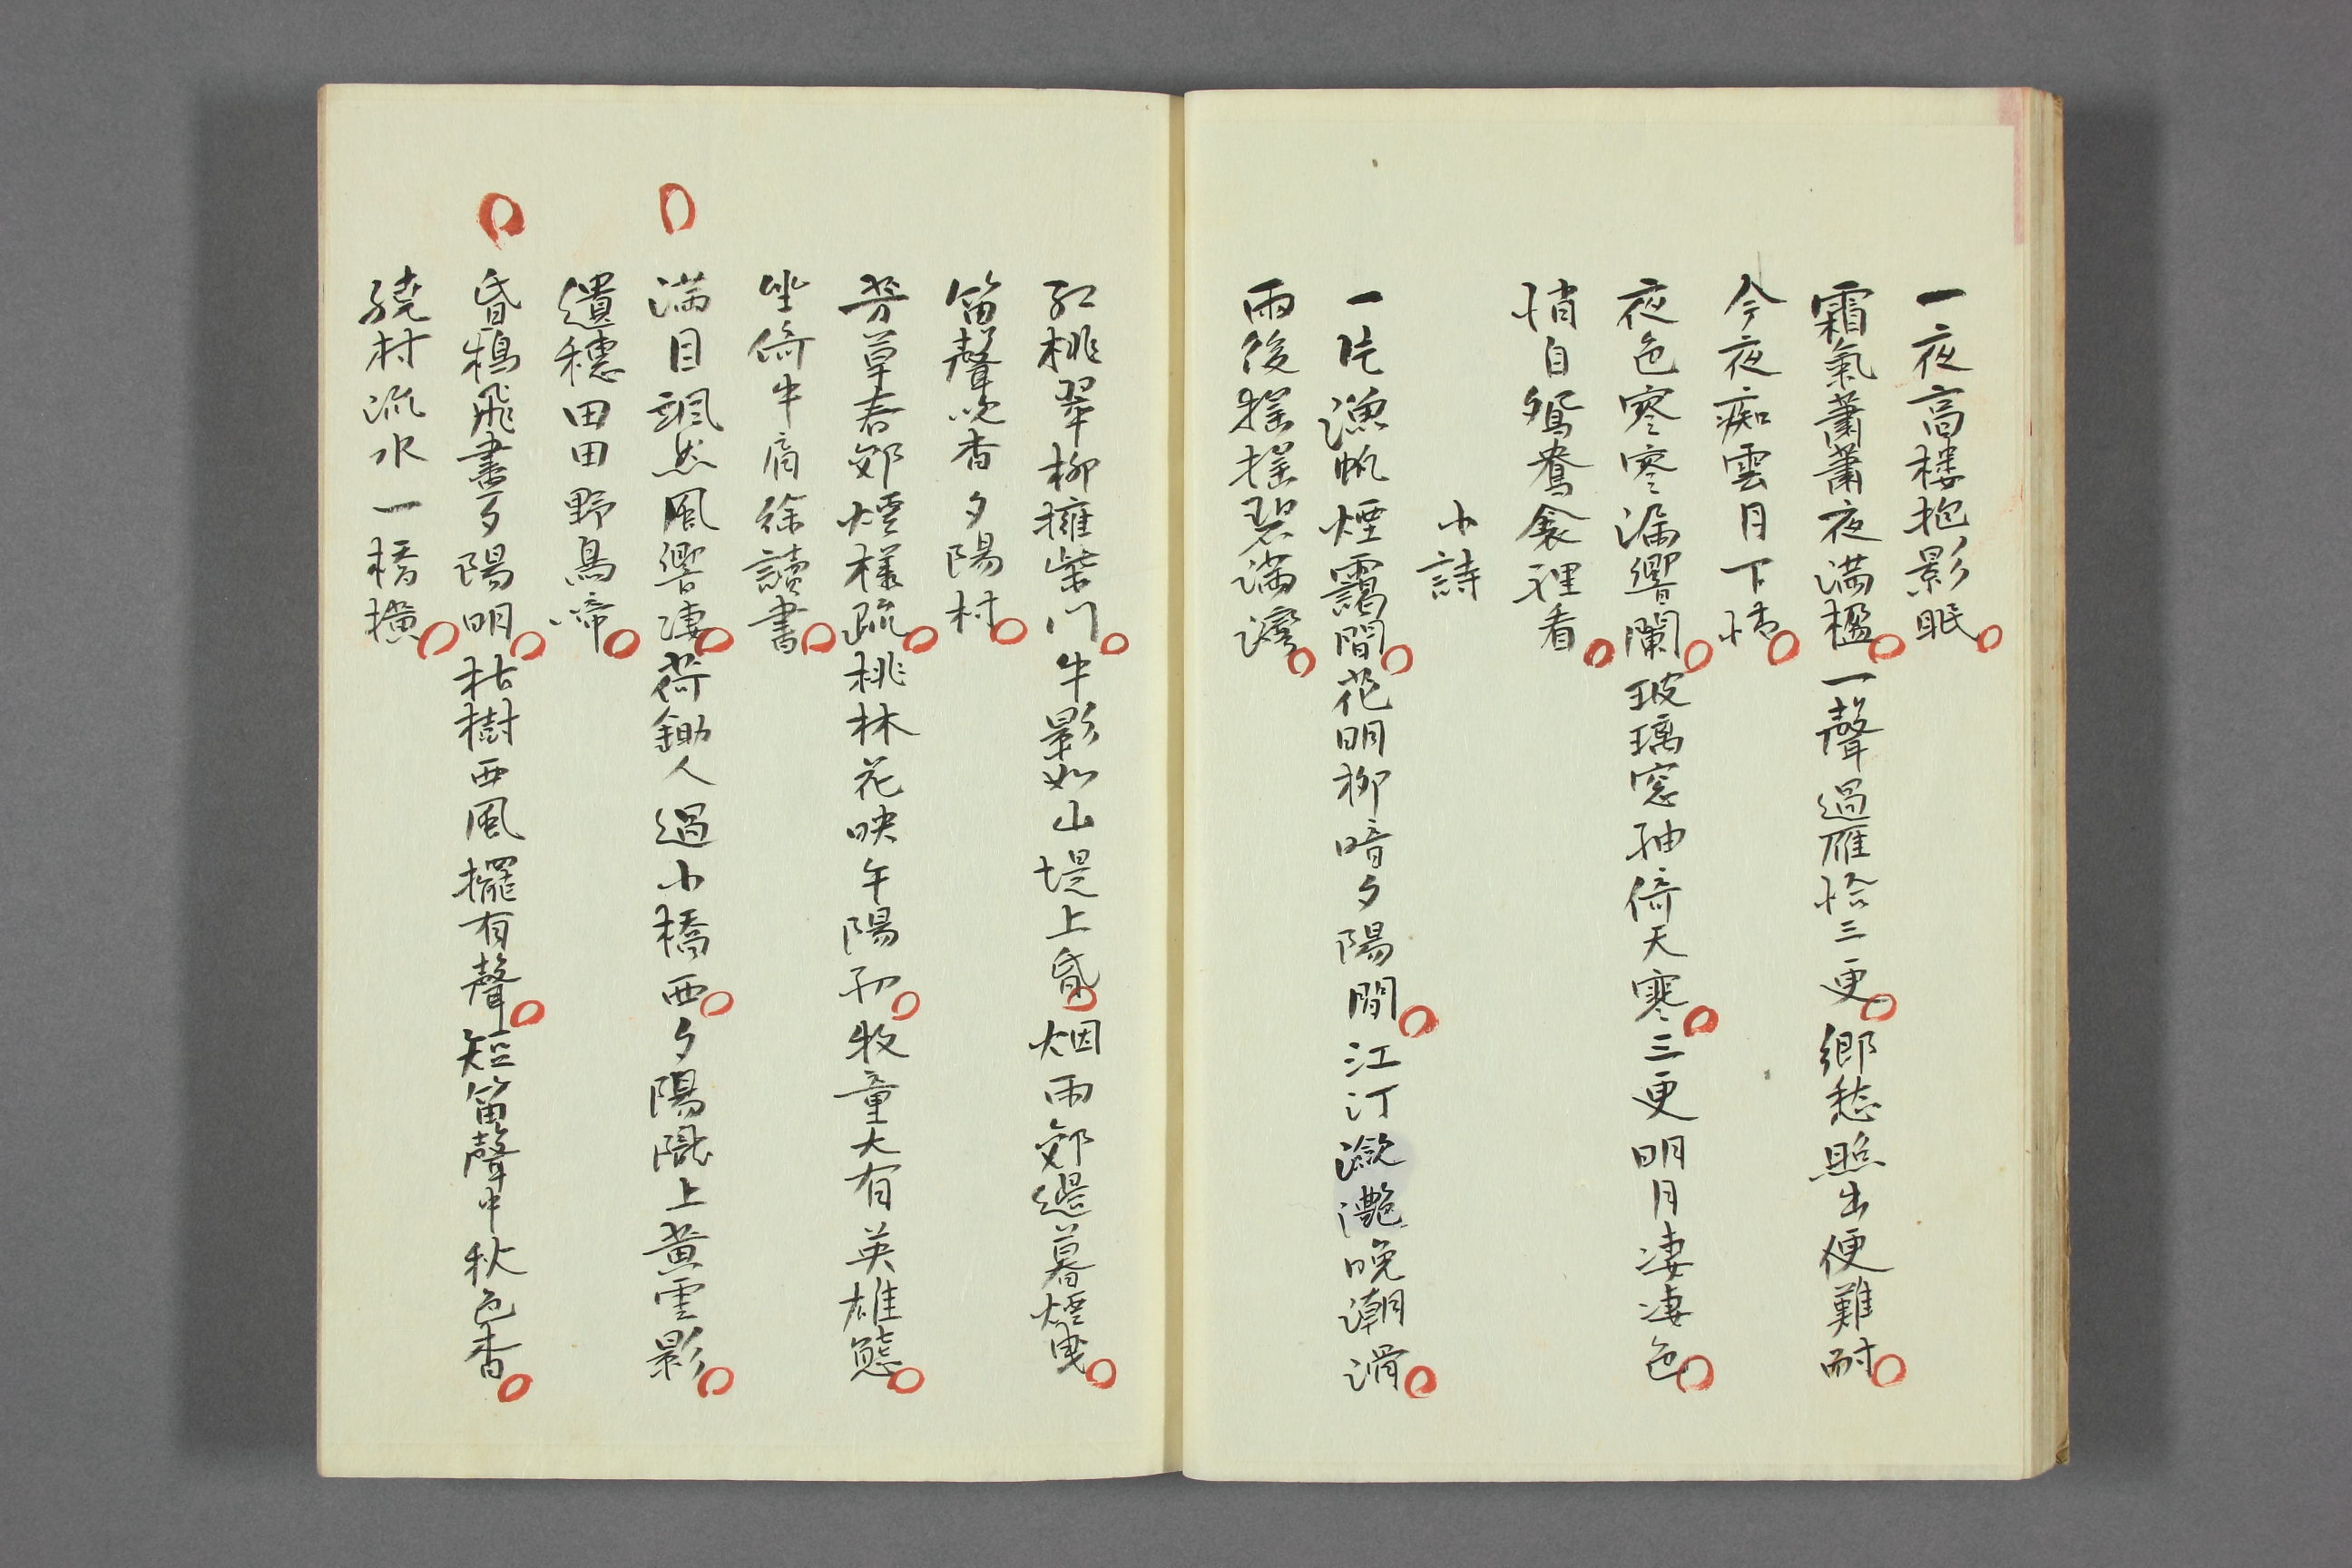 一夜高楼抱影眠
霜氣蕭蕭夜満楹一聲過雁恰三更郷愁照出便難耐
今夜痴雲月下情
夜色寥寥漏響闌玻璃窓紬倚天寒三更明月凄凄色
悄自鴛鴦衾裡看
小詩
一片漁帆煙靄間花明柳暗夕陽間江汀瀲灔晚潮滑
雨後揺揺碧満灣
紅桃翠柳擁柴門牛影如山堤上昏烟雨郊邊暮煙曳
笛聲吹杳夕陽村
芳草春郊煙様疏桃林花映午陽初牧童大有英雄態
坐倚牛肩徐讀書
満目颯然風響凄荷鋤人過小橋西夕陽隴上黄雲影
遺穗田田野鳥啼
昏鴉飛盡夕陽明枯樹西風擺有聲短笛聲中秋色杳
繞村流水一橋横